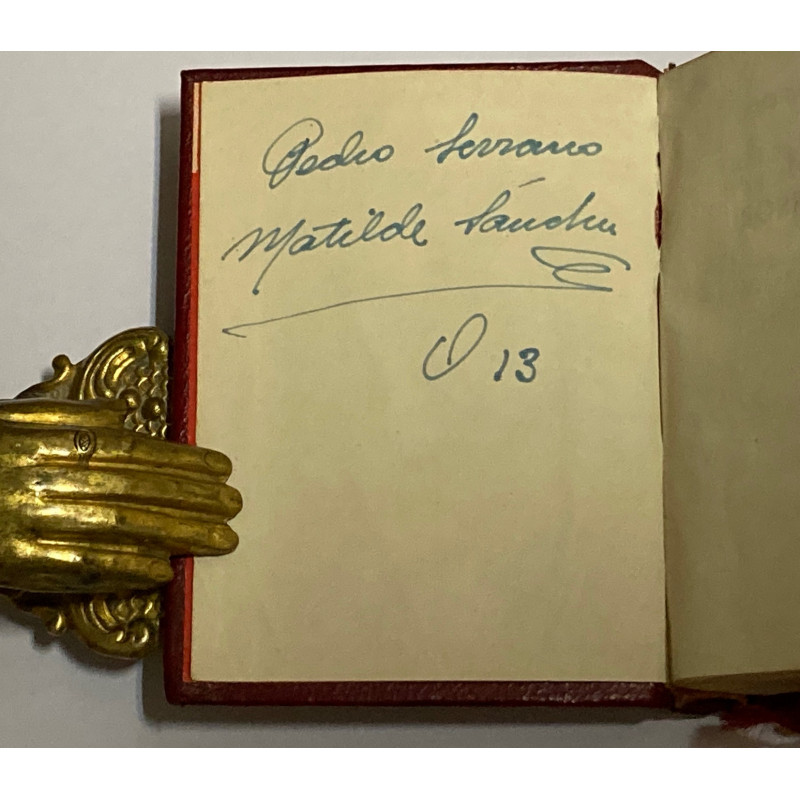 Pedro Serrano
Matilde Sánchez
O 13